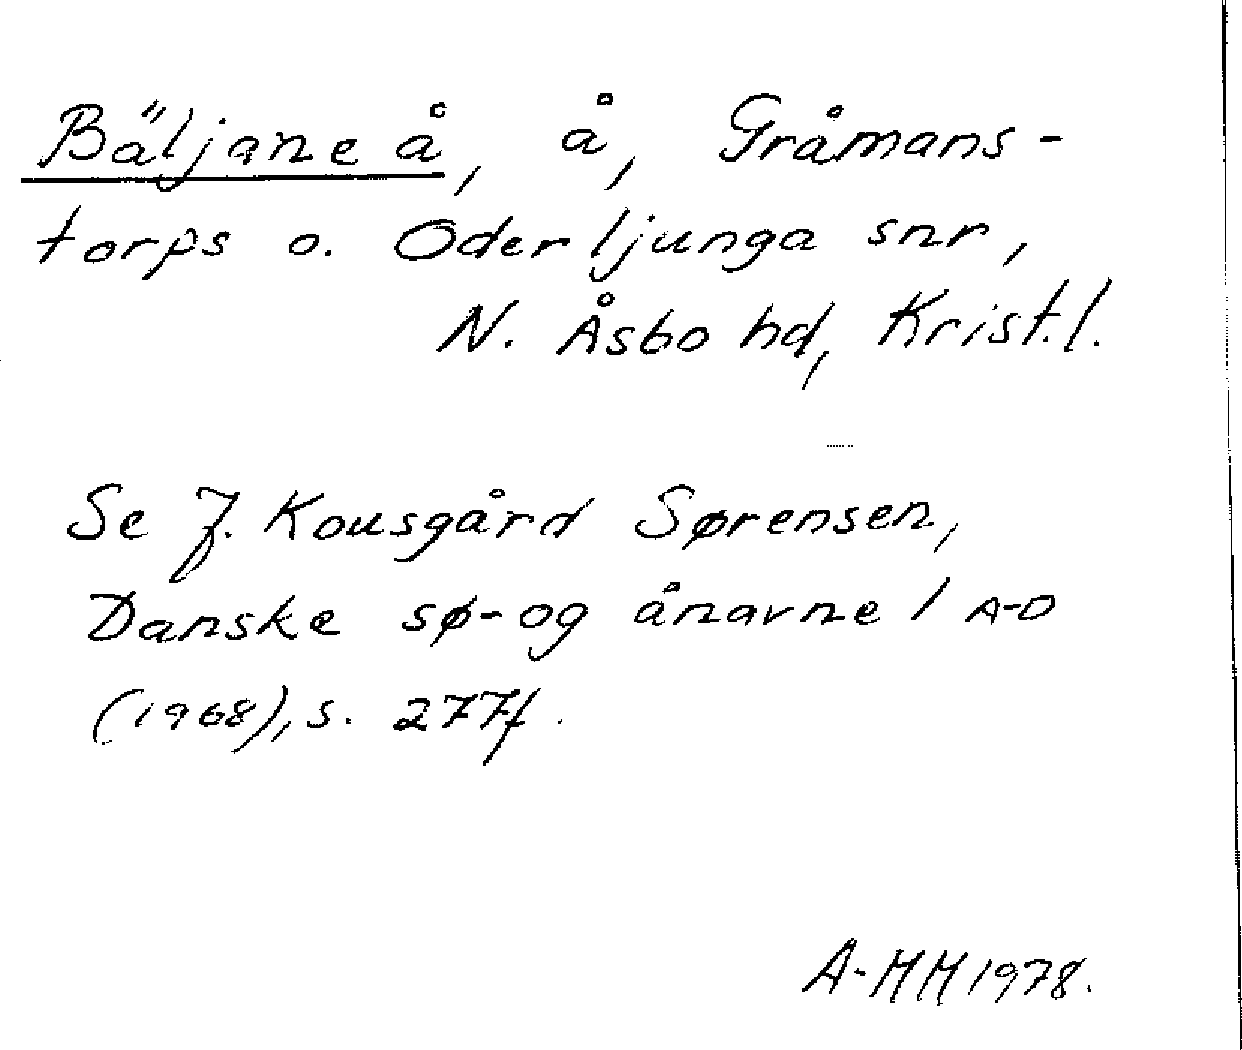 Bäljane å, å, Gråmans-
torps o. Oderljunga snr,
N. Åsbo hd, Krist.l.
Se J. Kousgård Sørensen,
Danske sø- og ånavne I A-D
(1968), s. 277f.
A-MM 1978.